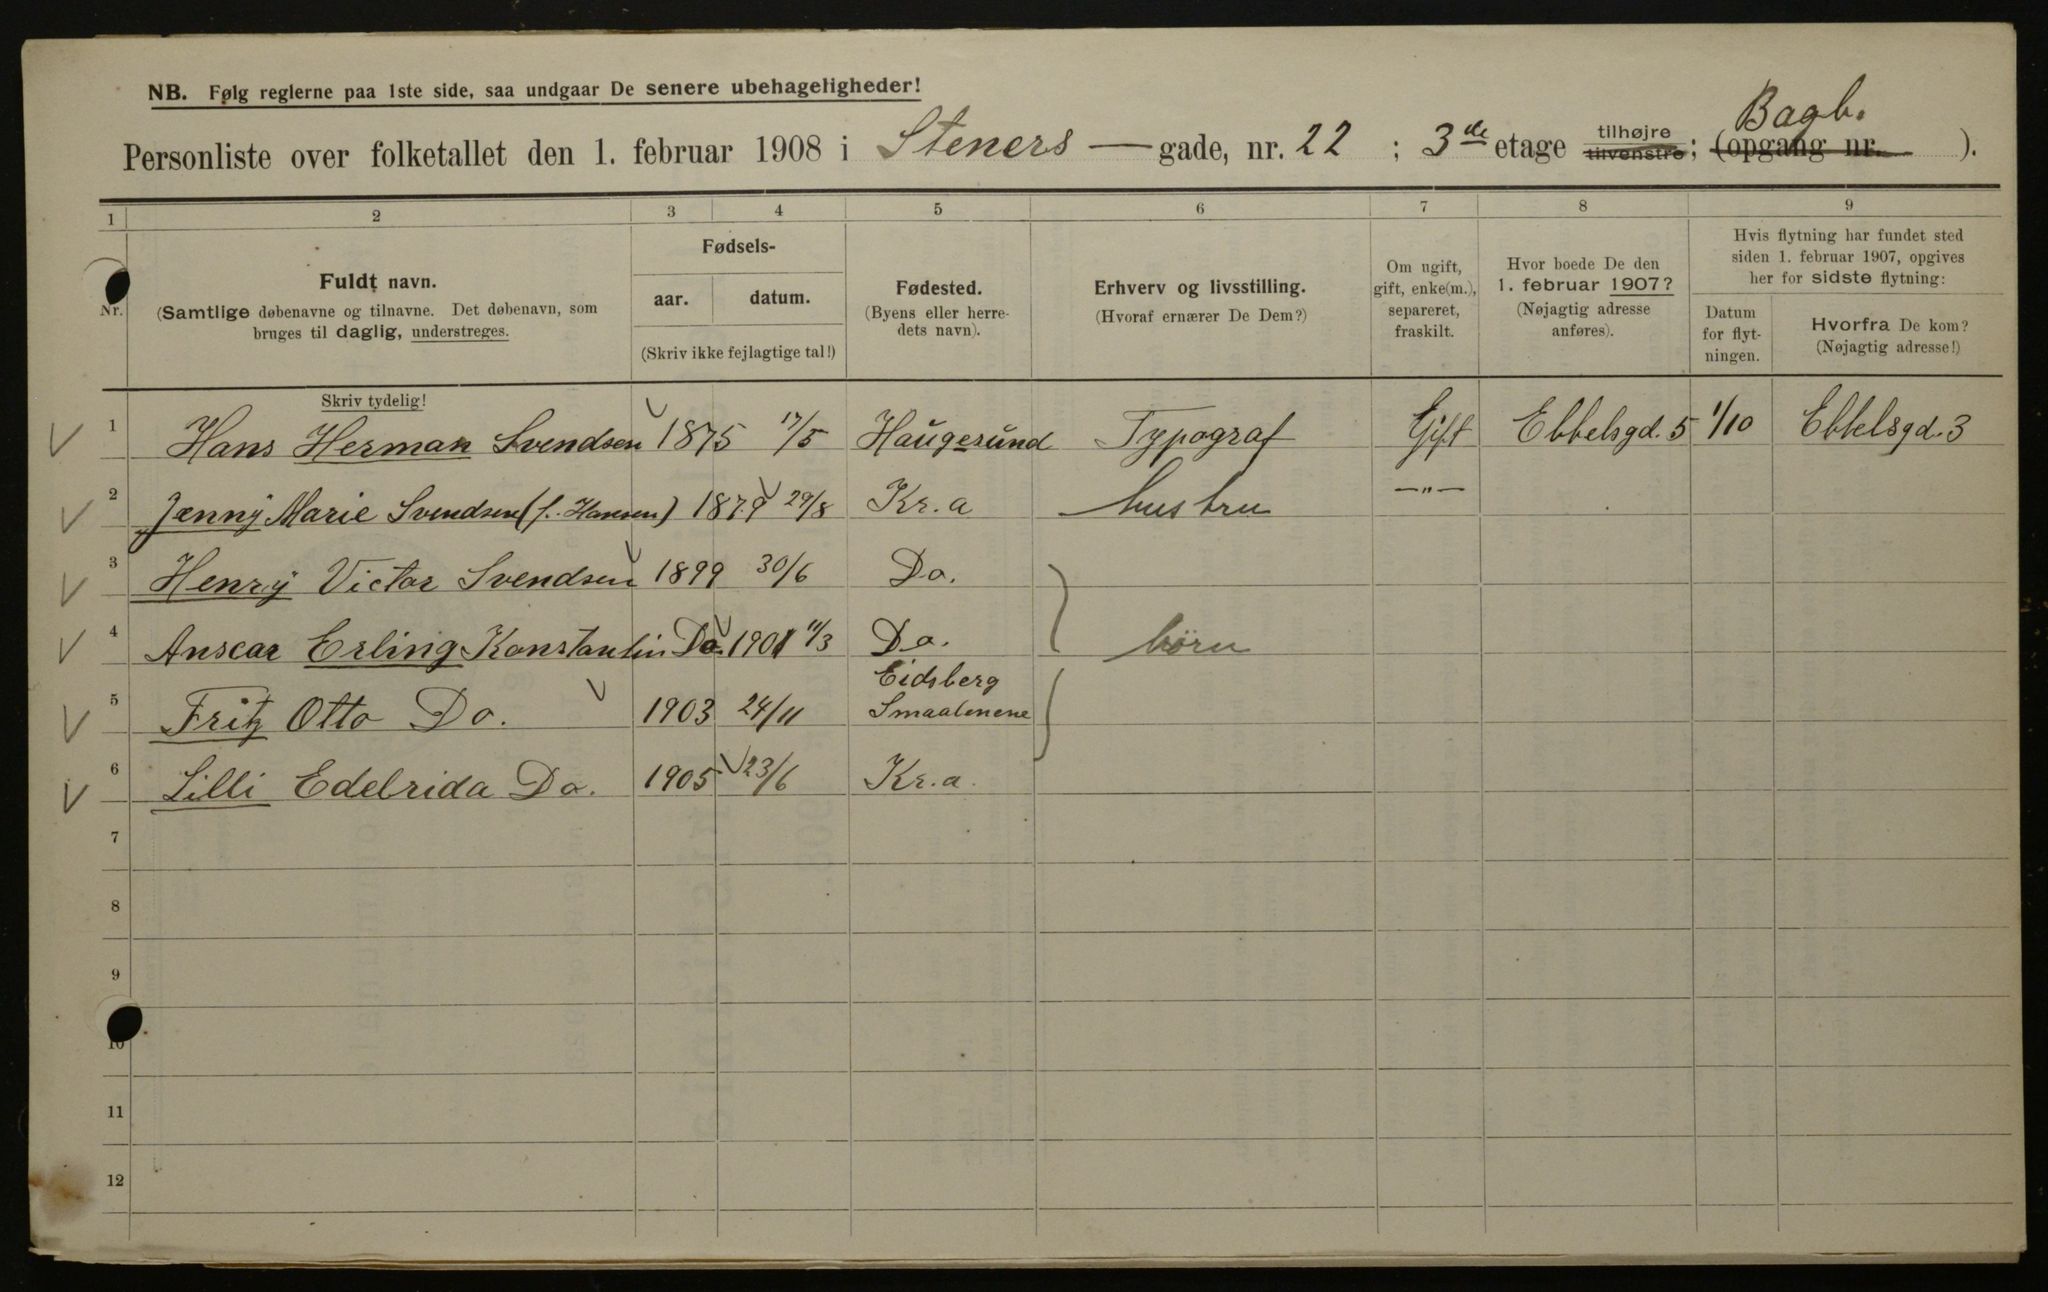 NB. Følg reglerne paa 1ste side, saa undgaar De senere ubehageligheder!
Bagb.
Personliste over folketallet den 1. februar 1908 i Steners — gade, nr. 22 ; 3de etage tilhøjre tilvenstre ; (opgang nr. ).
1 2 3 4 5 6 7 8 9
Nr.
Fuldt navn.
(Samtlige døbenavne og tilnavne. Det døbenavn, som
bruges til daglig, understreges.
Skriv tydelig!
Fødsels-
aar. datum.
(Skriv ikke fejlagtige tal!)
Fødested.
(Byens eller herre-
dets navn).
Erhverv og livsstilling.
(Hvoraf ernærer De Dem?)
Om ugift,
gift, enke(m.),
separeret,
fraskilt.
Hvor boede De den
1. februar 1907?
(Nøjagtig adresse
anføres).
Hvis flytning har fundet sted
siden 1. februar 1907, opgives
her for sidste flytning:
Datum
for flyt-
ningen.
Hvorfra De kom?
(Nøjagtig adresse!)
1 Hans Herman Svendsen 1875 17/5 Haugesund Typograf Gift Ebbelsgd. 5 1/10 Ebbelsgd. 3
2 Jenny Marie Svendsen (f. Hansen) 1879 29/8 Kr.a hustru —"—
3 Henry Victor Svendsen 1899 30/6 Do.
4 Anscar Erling Konstantin Do. 1901 11/3 Do. börn
5 Fritz Otto Do. 1903 24/11 Eidsberg
Smaalenene
6 Lilli Edelrida Do. 1905 23/6 Kr.a.
7
8
9
10
11
12